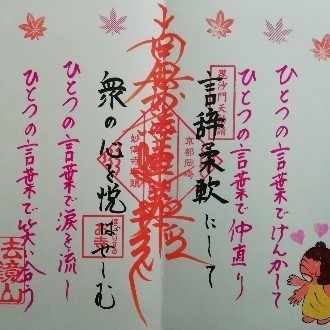 ひとつの言葉でけんかして
ひとつの言葉で仲直り
毘沙門天
言辞柔軟にして
京都岡崎
南無妙法蓮華経
妙傳寺
衆の心を悦ばせしむ
ひとつの言葉で涙を流し
ひとつの言葉で笑い合う